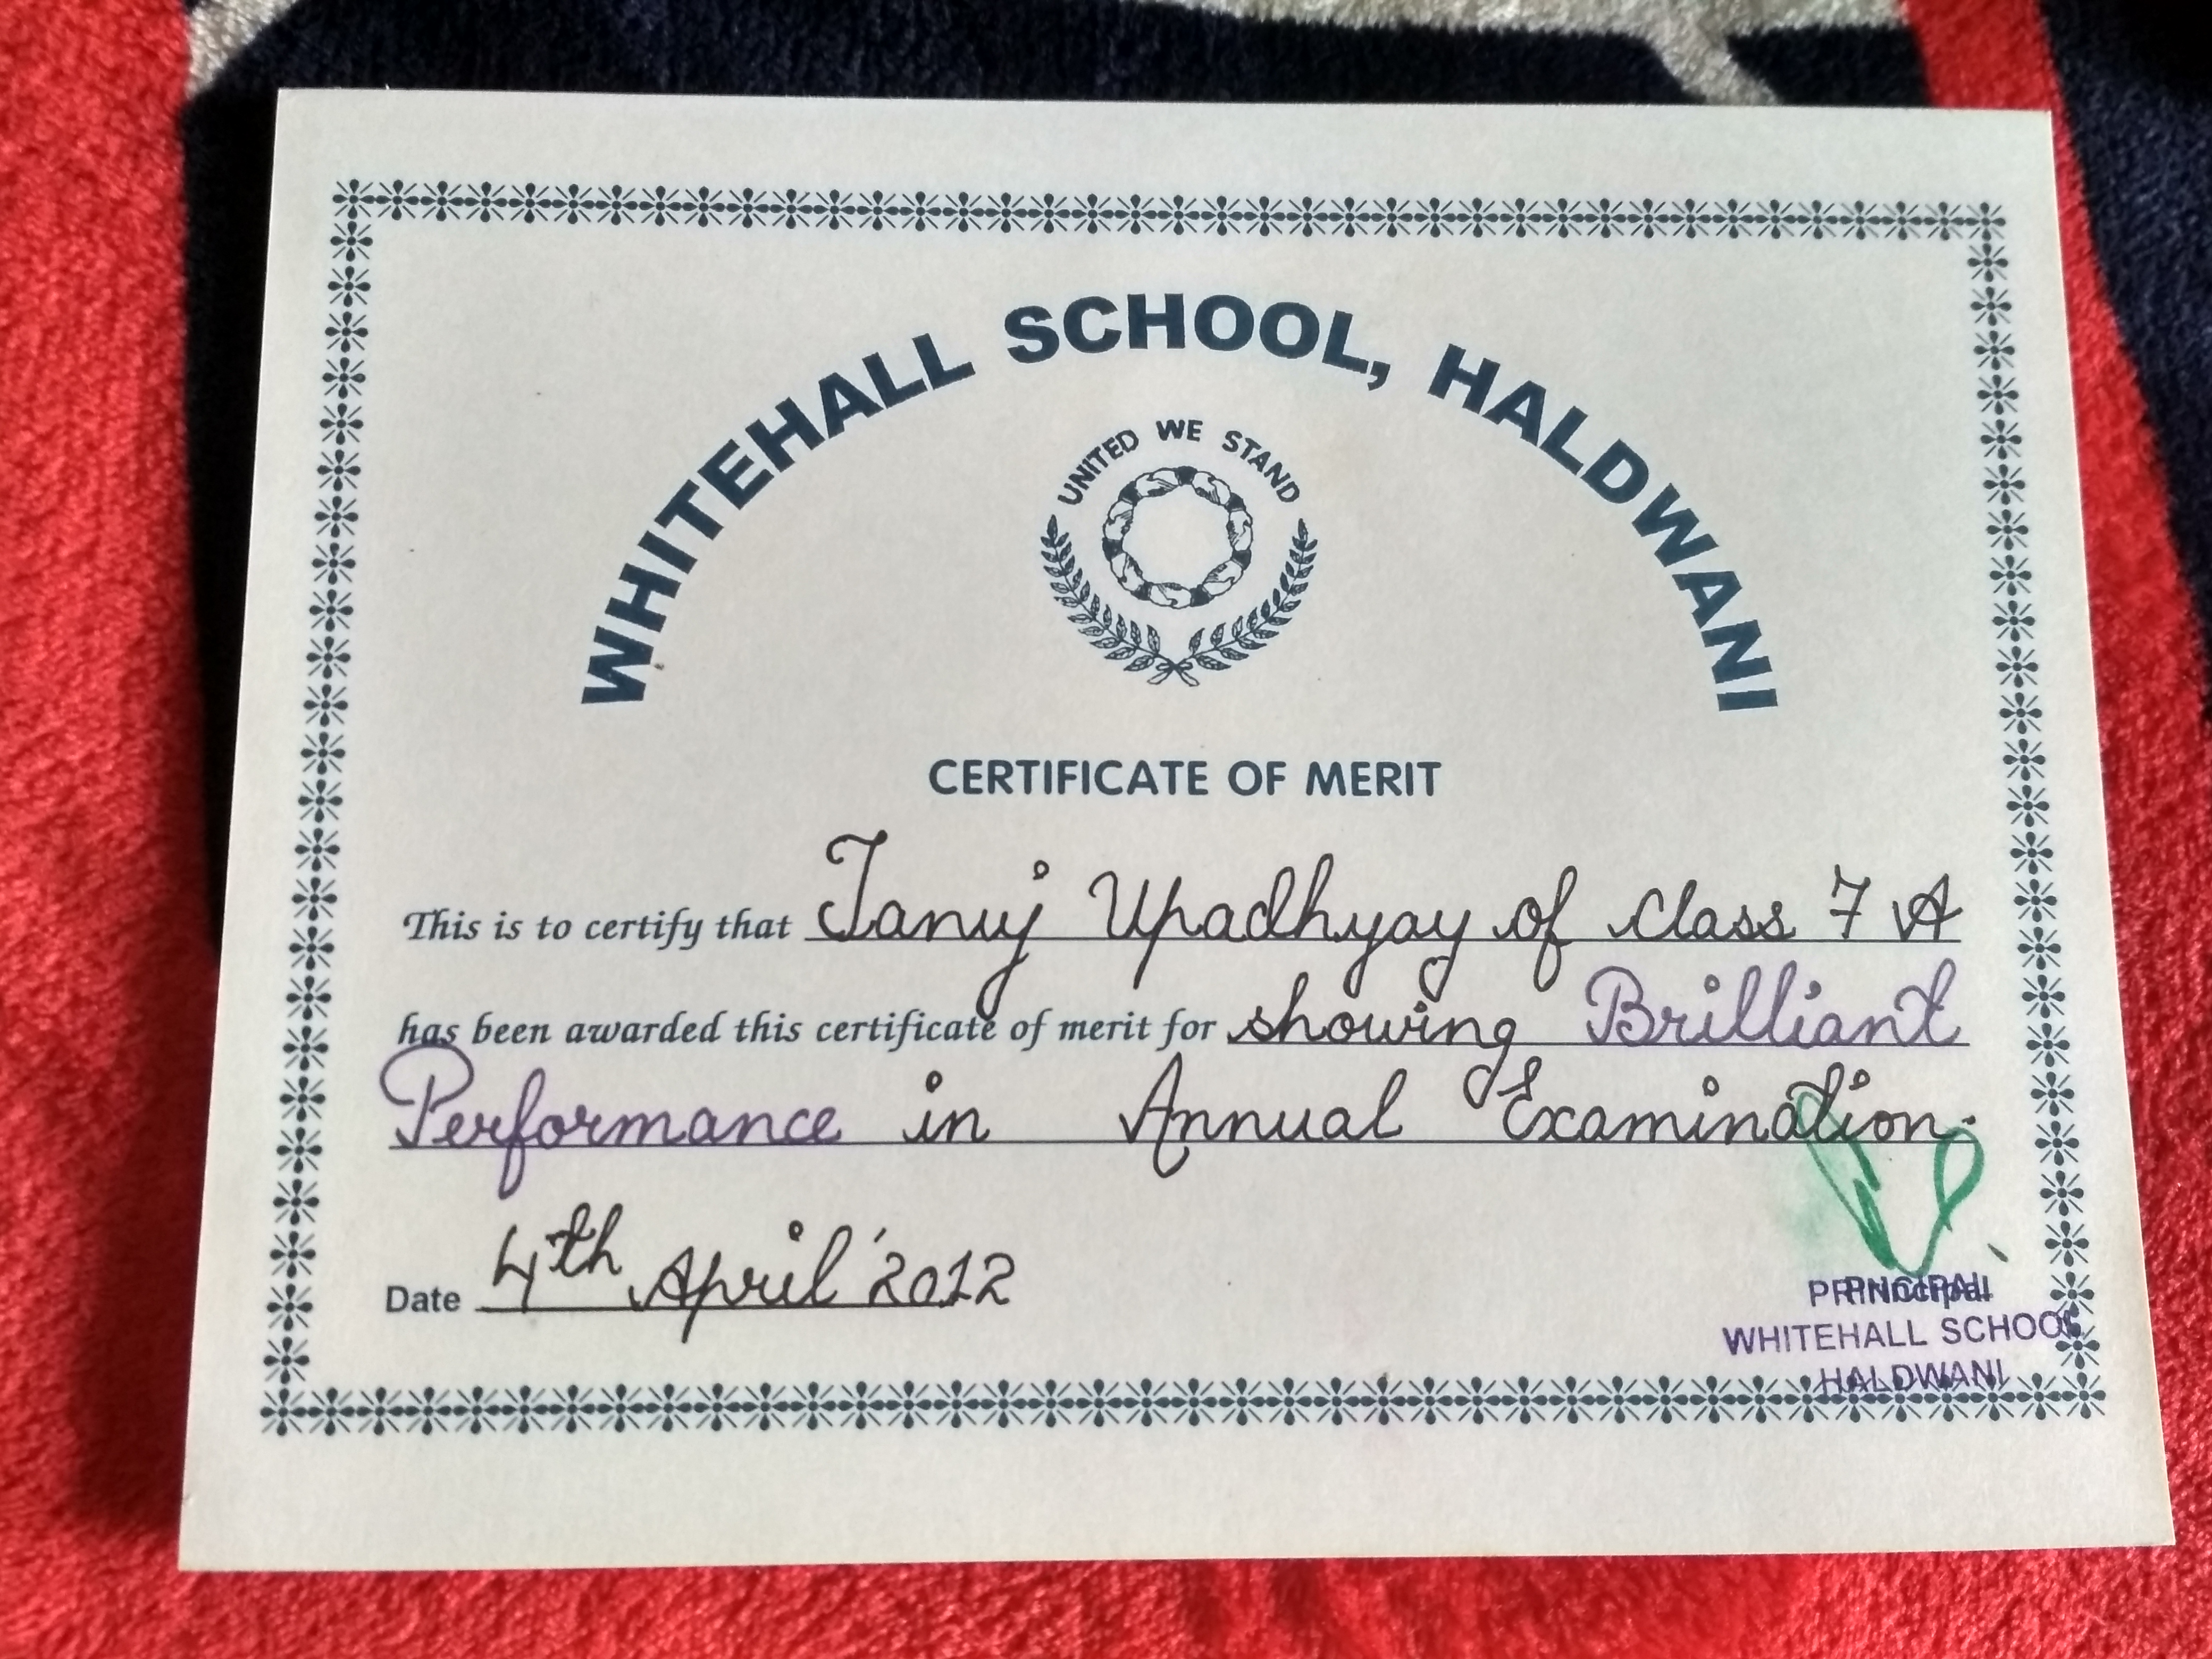 WHITEHALL SCHOOL, HALDWANI
UNITED WE STAND
CERTIFICATE OF MERIT
This is to certify that Tanuj Upadhyay of Class 7 A
has been awarded this certificate of merit for showing Brilliant
Performance in Annual Examination.
Date 4th April '2012
Principal
PRINCIPAL
WHITEHALL SCHOOL
HALDWANI